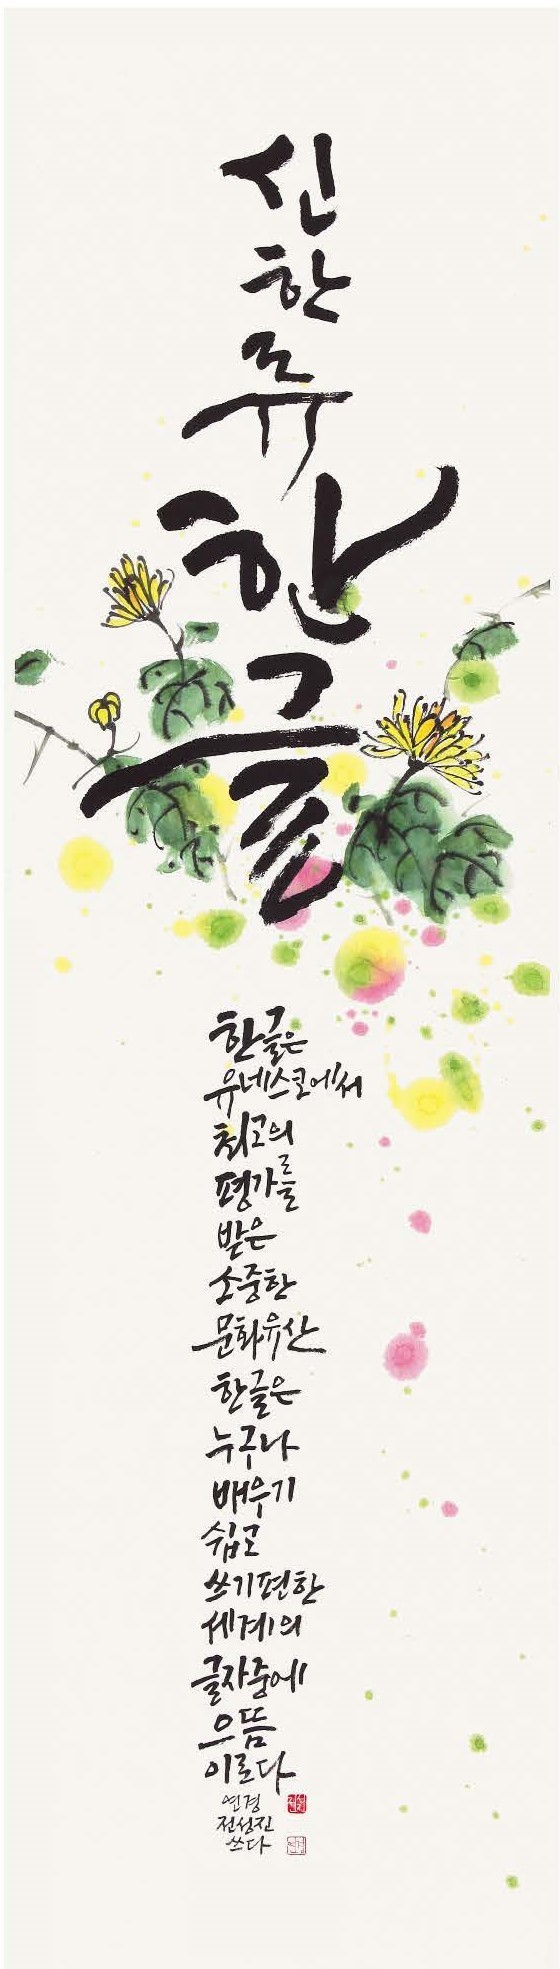 신
한
류
한
글
한글은
유네스코에서
최고의
평가를
받은
소중한
문화유산
한글은
누구나
배우기
쉽고
쓰기편한
세계의
글자중에
으뜸
이로다
연경
전성진
쓰다